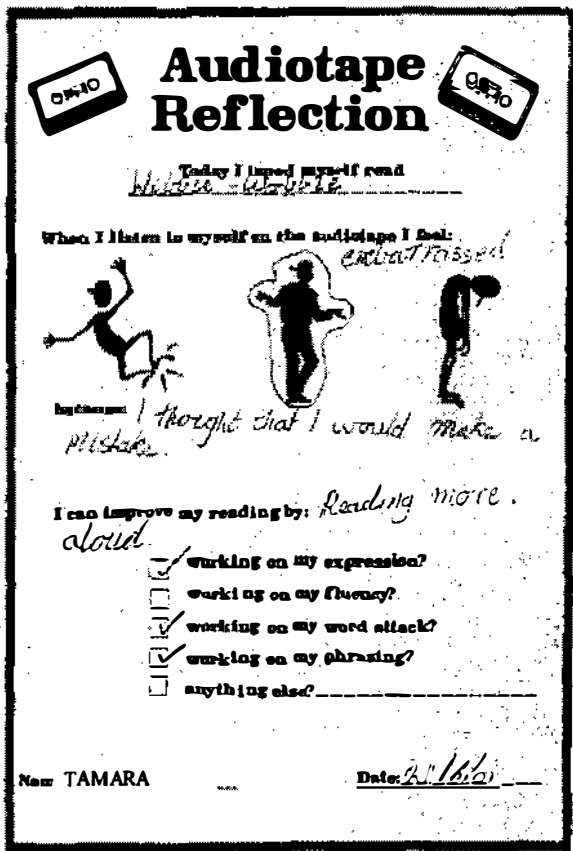 Audiotape
Reflection
Today I taped myself read
When I listen to myself on the audiotape I feel:
embarrassed
because I thorght that I would make a
mistake.
I can improve my reading by: Reading more.
aloud.
working on my expression?
working on my fluency?
working on my word attack?
working on my phrasing?
anything else?
Name TAMARA Date: